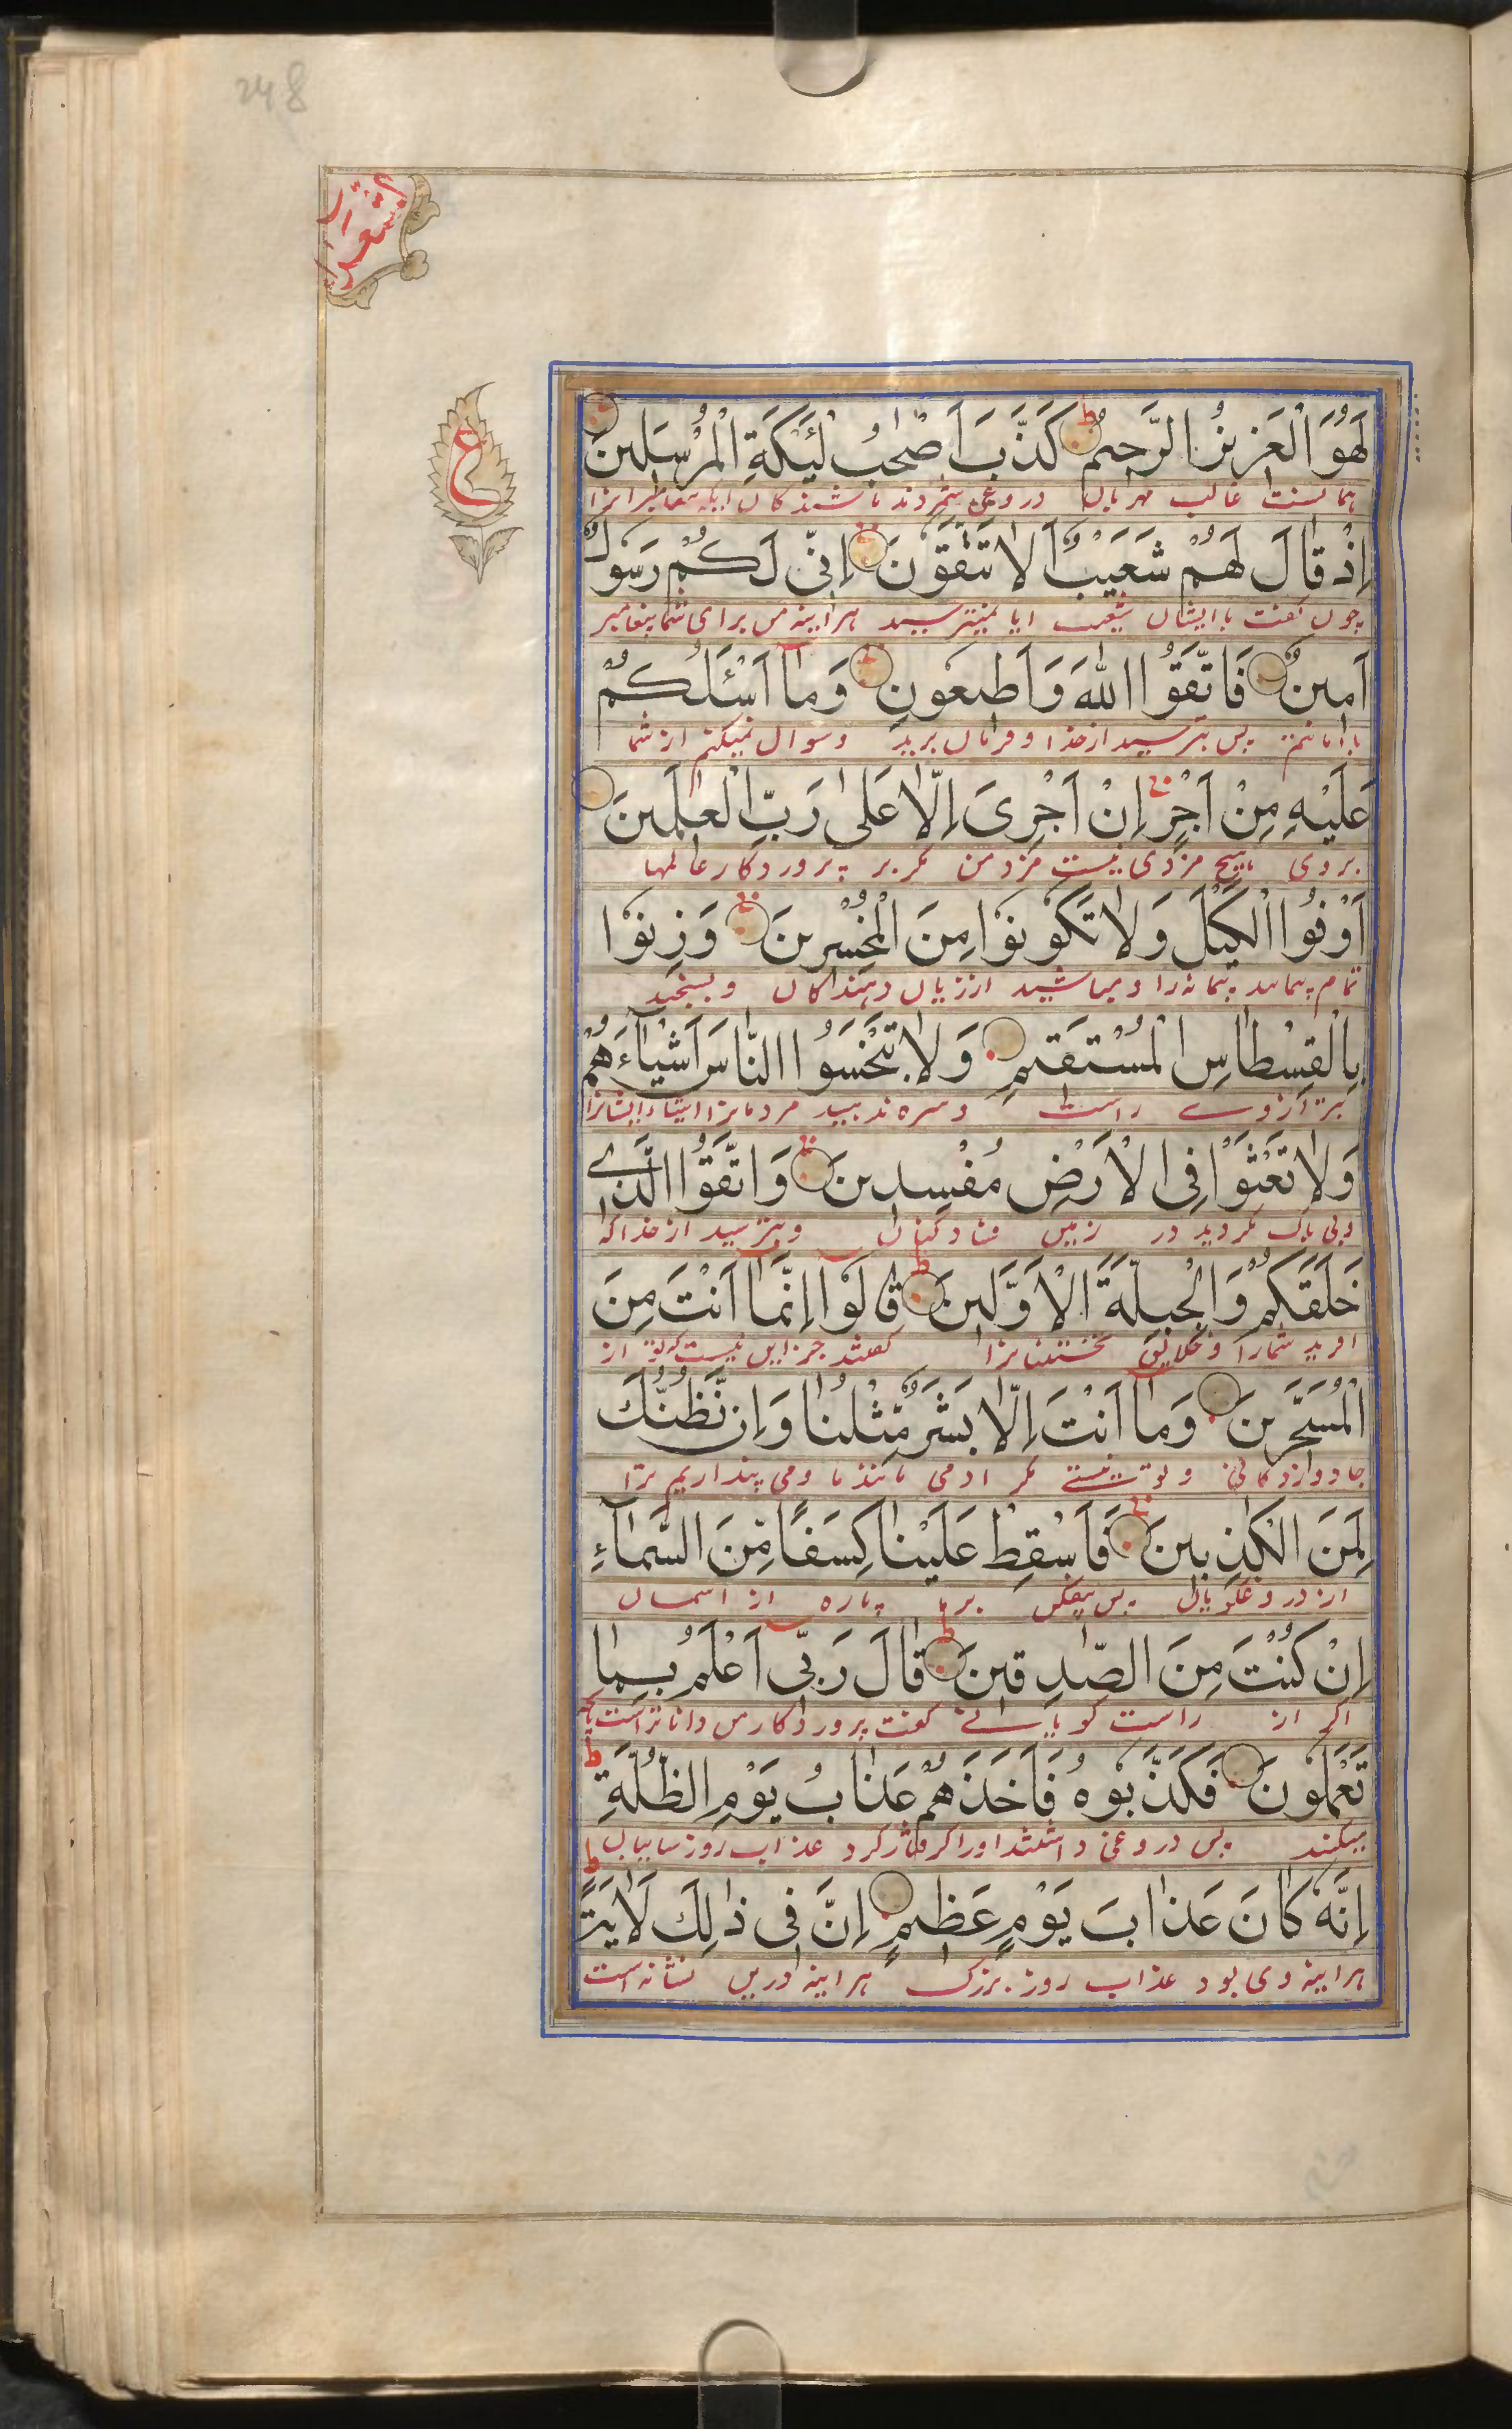 248
الشعراء
ع
لَهُوَ الْعَزِيزُ الرَّحِيمُ كَذَّبَ اَصْحٰبُ لْئَيْكَةِ الْمُرْسَلِينَ
غالب مهربان دروغی شمردند باشندکان ایکه پیغامبرانرا
اِذْ قَالَ لَهُمْ شُعَيْبٌ اَلَا تَتَّقُونَ اِنِّى لَكُمْ رَسُولٌ
چون گفت باایشان شعیب ایا نمیترسید هراینه من برای شما پیغامبر
اَمِينٌ فَاتَّقُوا اللّٰهَ وَاَطِيعُونِ وَمَا اَسْئَلُكُمْ
باامانتم پس بترسید ازخدا و فرمان برید وسوال نمیکنم از شما
عَلَيْهِ مِنْ اَجْرٍ اِنْ اَجْرِىَ اِلَّا عَلٰى رَبِّ الْعٰلَمِينَ
بروی هیچ مزدی نیست مزد من مکر بر پروردکار عالمها
اَوْفُوا الْكَيْلَ وَلَا تَكُونُوا مِنَ الْمُخْسِرِينَ وَزِنُوا
تمام پیمایید پیمانه را و مباشید اززیان دهندکان و بسنجید
بِالْقِسْطَاسِ الْمُسْتَقِيمِ وَلَا تَبْخَسُوا النَّاسَ اَشْيَآءَهُمْ
بترازوے راست مردمانرا اشیاء ایشانرا
وَلَا تَعْثَوْا فِى الْاَرْضِ مُفْسِدِينَ وَاتَّقُوا الَّذِے
وبی باک مکردید در زمین فسادکنان وبترسید ازخداکه
خَلَقَكُمْ وَالْجِبِلَّةَ الْاَوَّلِينَ قَالُوا اِنَّمَا اَنْتَ مِنَ
افرید شمارا وخلایق نخستینانرا گفتند جزاین نیست که تو از
الْمُسَحَّرِينَ وَمَا اَنْتَ اِلَّا بَشَرٌ مِّثْلُنَا وَاِن نَّظُنُّكَ
جادوزدکانی و تو نیستے مکر ادمی مانندما ومی پنداریم ترا
لَمِنَ الْكٰذِبِينَ فَاَسْقِطْ عَلَيْنَا كِسَفًا مِّنَ السَّمَآءِ
از دروغکویان پس بیفکن برما پاره از اسمان
اِنْ كُنْتَ مِنَ الصّٰدِقِينَ قَالَ رَبِّى اَعْلَمُ بِمَا
اکر از راست کویانے گفت پروردکارمن داناتراست بانچه
تَعْمَلُونَ فَكَذَّبُوهُ فَاَخَذَهُمْ عَذَابُ يَوْمِ الظُّلَّةِ
میکنید پس دروغی داشتند اورا گرفتارکرد عذاب روز سایبان
اِنَّهُ كَانَ عَذَابَ يَوْمٍ عَظِيمٍ اِنَّ فِى ذٰلِكَ لَاٰيَةً
هراینه وی بود عذاب روز بزرک هراینه دراین نشانه است